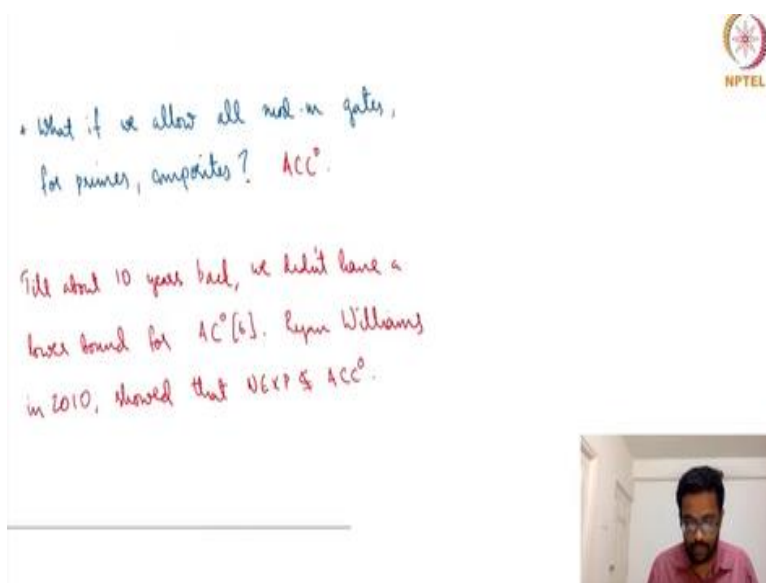 NPTEL
• What if we allow all mod-m gates,
for primes, composites? ACC⁰.
Till about 10 years back, we didn't have a
lower bound for AC⁰[6]. Ryan Williams
in 2010, showed that NEXP ⊈ ACC⁰.